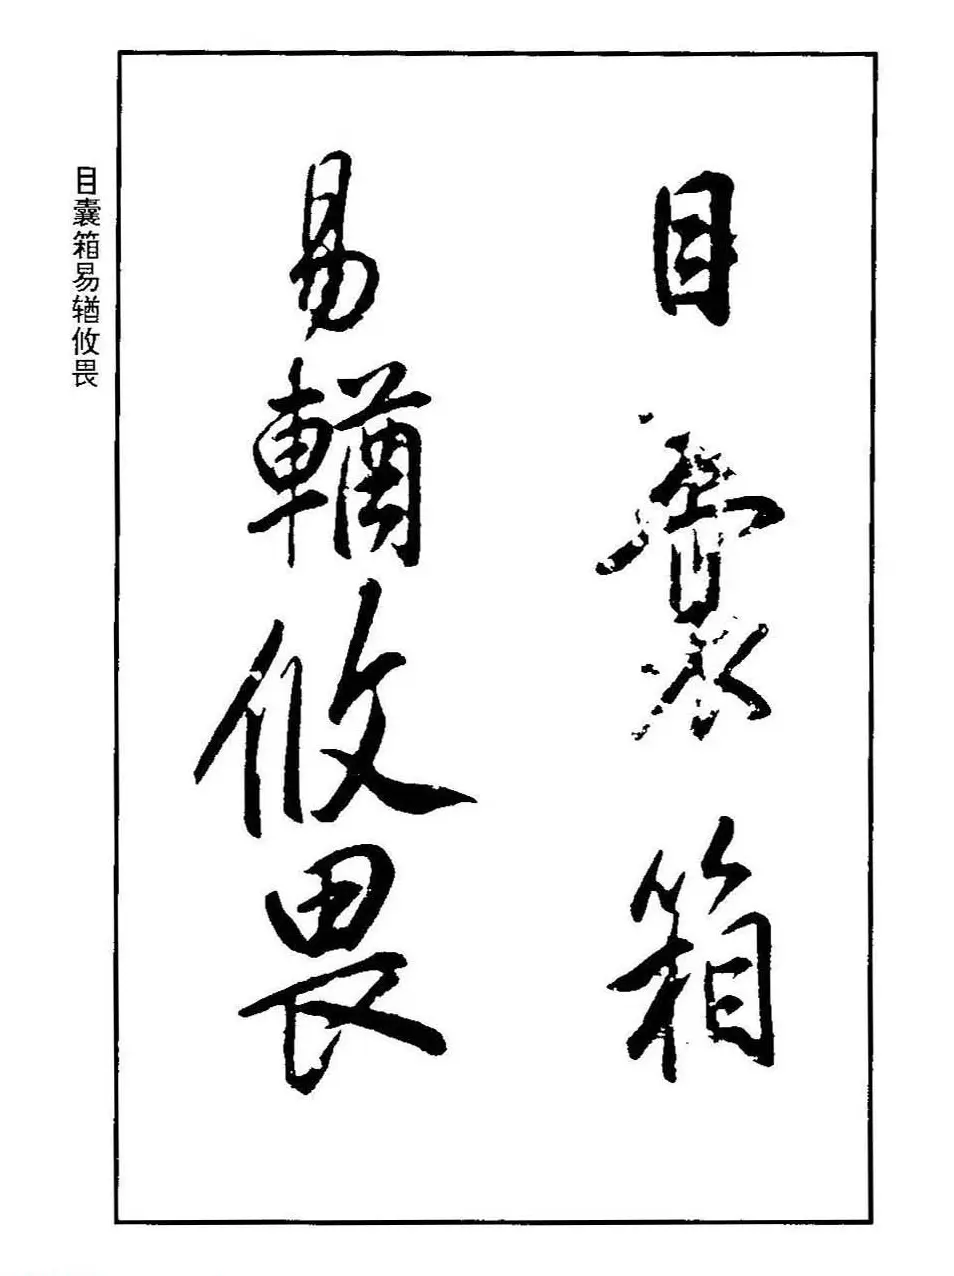 目囊箱
易輶攸畏
目囊箱易𬨎攸畏